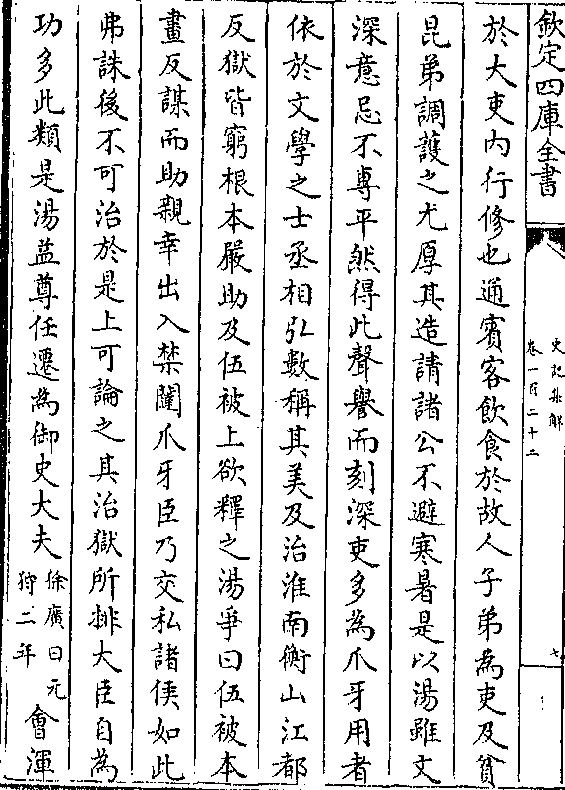 欽定四庫全書
史記集解
卷一百二十二
七
於大吏内行修也通賓客飲食於故人子弟為吏及貧
昆弟調護之尤厚其造請諸公不避寒暑是以湯雖文
深意忌不專平然得此聲譽而刻深吏多為爪牙用者
依於文學之士丞相弘數稱其美及治淮南衡山江都
反獄皆窮根本嚴助及伍被上欲釋之湯爭曰伍被本
畫反謀而助親幸出入禁闥爪牙臣乃交私諸侯如此
弗誅後不可治於是上可論之其治獄所排大臣自為
功多此類是湯益尊任遷為御史大夫徐廣曰元狩二年會渾